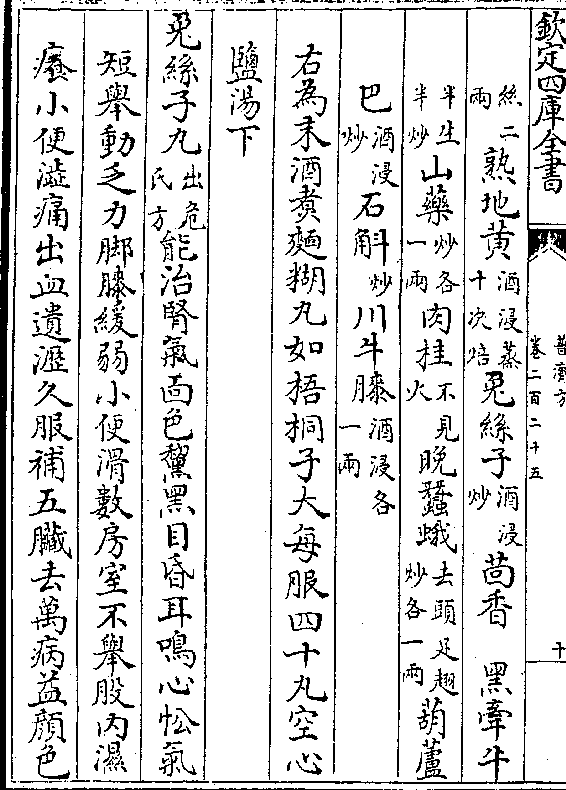 欽定四庫全書
普濟方
卷二百二十五
十
絲二兩熟地黄酒浸蒸十次焙兎絲子酒浸炒茴香黑牽牛
半生半炒山藥炒各一兩肉桂不見火晚蠶蛾去頭足翅炒各一兩葫蘆
巴酒浸炒石斛炒川牛膝酒浸各一兩
右為末酒煑麵糊丸如梧桐子大每服四十丸空心
鹽湯下
兎絲子丸出危氏方能治腎氣面色黧黑目昏耳鳴心忪氣
短舉動乏力脚膝緩弱小便滑數房室不舉股内濕
癢小便澁痛出血遺瀝久服補五臟去萬病益顔色